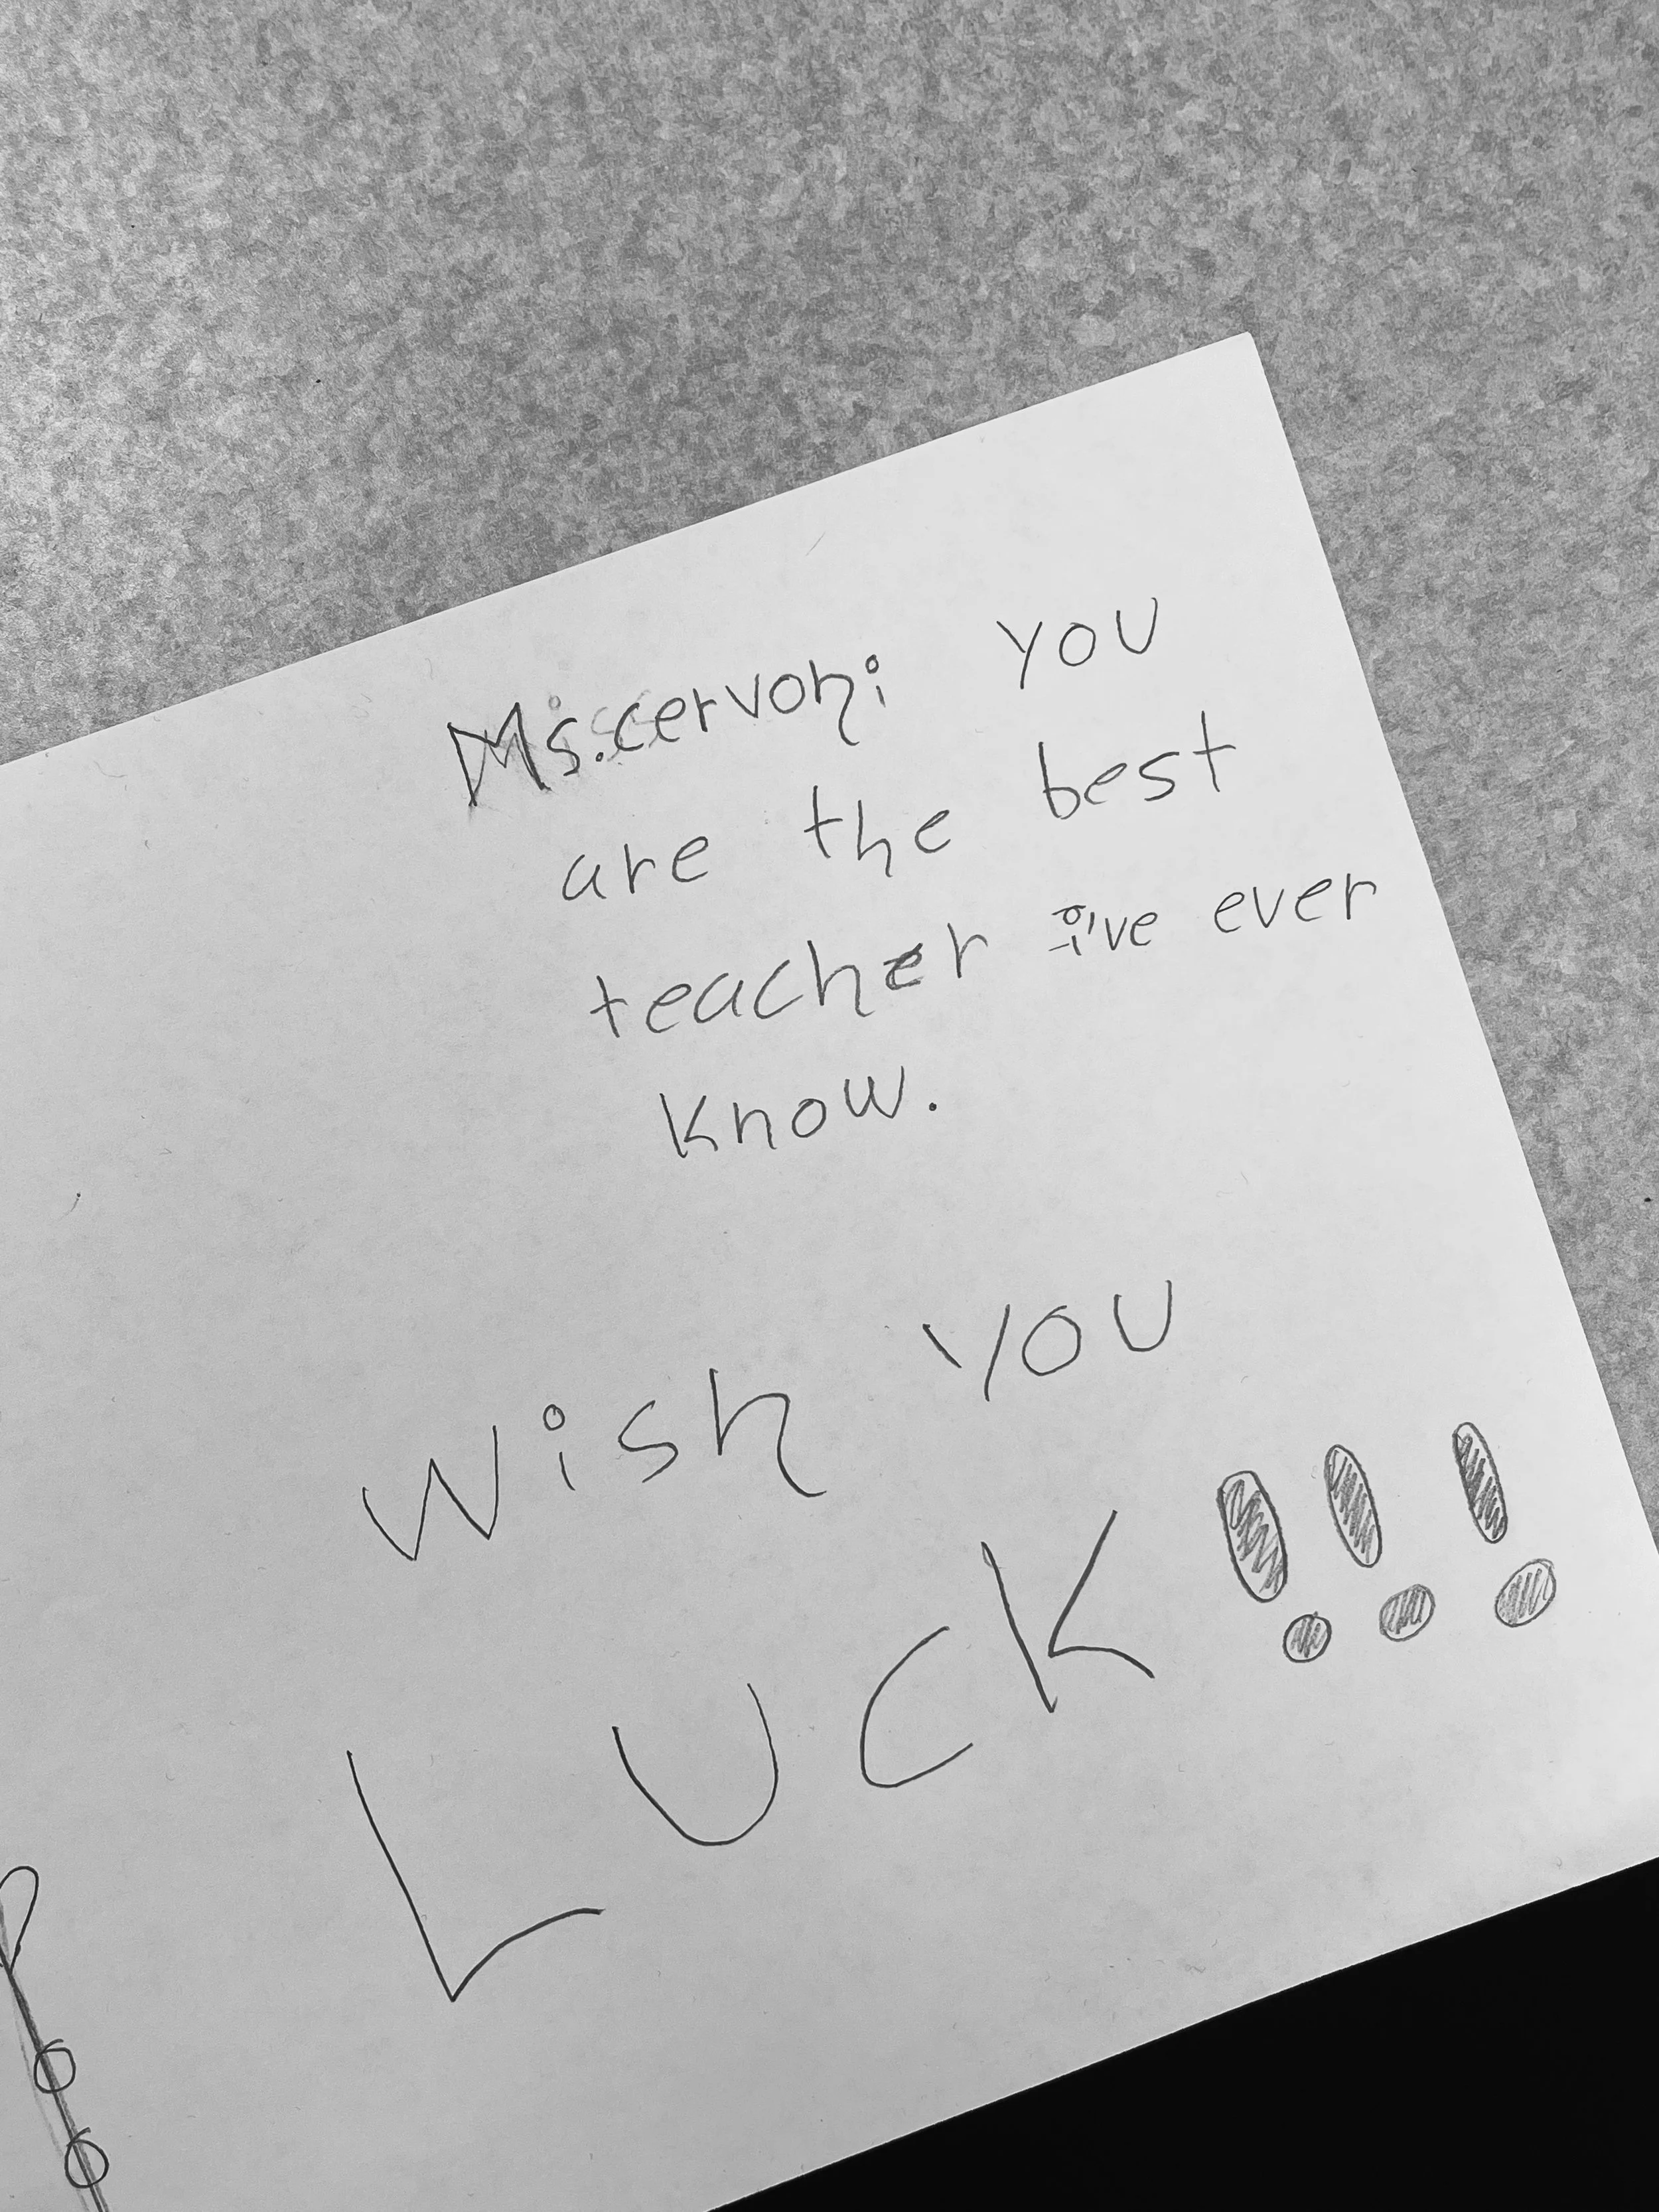 Ms.cervoni you
are the best
teacher i've ever
know.
Wish you
LUCK!!!